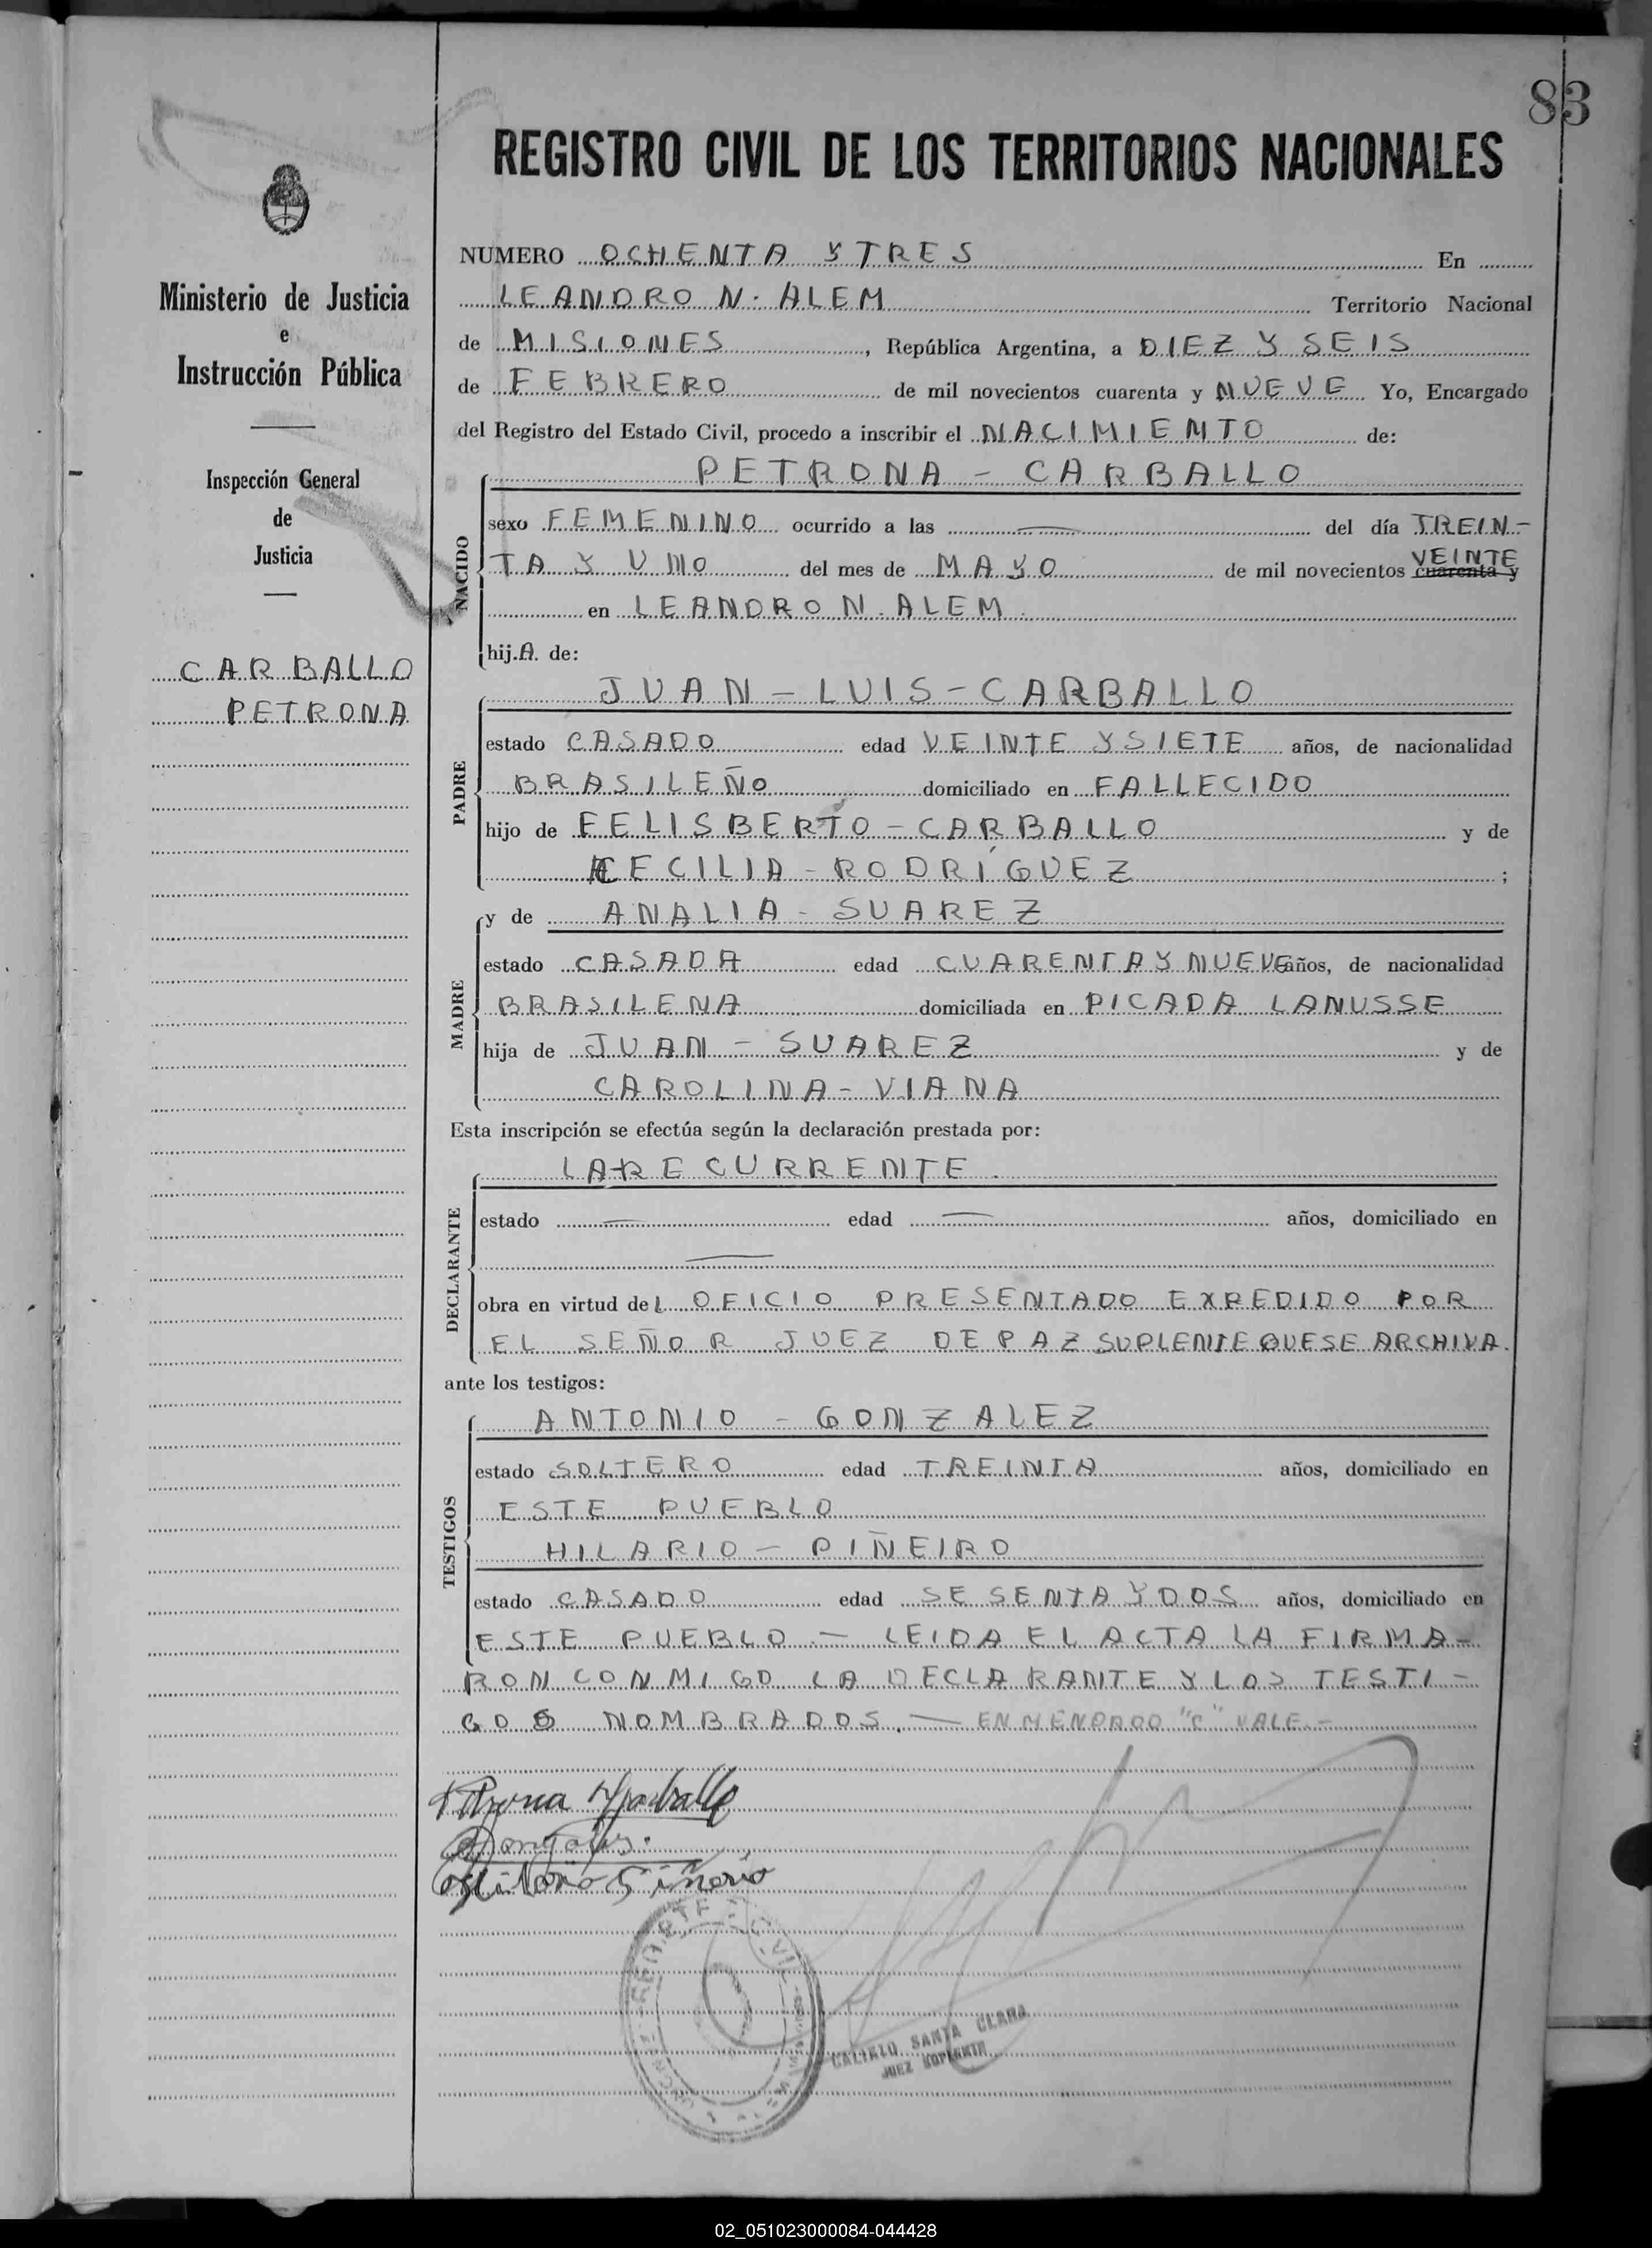 83
REGISTRO CIVIL DE LOS TERRITORIOS NACIONALES
Ministerio de Justicia
e
Instrucción Pública
Inspección General
de
Justicia
CARBALLO
PETRONA
NUMERO OCHENTA Y TRES En
LEANDRO N. ALEM Territorio Nacional
de MISIONES, República Argentina, a DIEZ Y SEIS
de FEBRERO de mil novecientos cuarenta y NUEVE Yo, Encargado
del Registro del Estado Civil, procedo a inscribir el NACIMIENTO de:
NACIDO
PETRONA - CARBALLO
sexo FEMENINO ocurrido a las — del día TREIN-
TA Y UNO del mes de MAYO de mil novecientos cuarenta y VEINTE
en LEANDRO N. ALEM.
hij.A. de:
PADRE
JUAN - LUIS - CARBALLO
estado CASADO edad VEINTE Y SIETE años, de nacionalidad
BRASILEÑO domiciliado en FALLECIDO
hijo de FELISBERTO - CARBALLO y de
CECILIA - RODRÍGUEZ ;
MADRE
y de ANALIA - SUAREZ
estado CASADA edad CUARENTA Y NUEVE años, de nacionalidad
BRASILENA domiciliada en PICADA LANUSSE
hija de JUAN - SUAREZ y de
CAROLINA - VIANA
Esta inscripción se efectúa según la declaración prestada por:
DECLARANTE
LA RECURRENTE.
estado — edad — años, domiciliado en
—
obra en virtud del OFICIO PRESENTADO EXPEDIDO POR
EL SEÑOR JUEZ DE PAZ SUPLENTE QUE SE ARCHIVA.
ante los testigos:
TESTIGOS
ANTONIO - GONZALEZ
estado SOLTERO edad TREINTA años, domiciliado en
ESTE PUEBLO
HILARIO - PIÑEIRO
estado CASADO edad SESENTA Y DOS años, domiciliado en
ESTE PUEBLO. — LEIDA EL ACTA LA FIRMA-
RON CONMIGO LA DECLARANTE Y LOS TESTI-
GOS NOMBRADOS. — ENMENDADO "C" VALE.-
Petrona Carballo
SANTA CLARA
JUEZ SUPLENTE
02_051023000084-044428